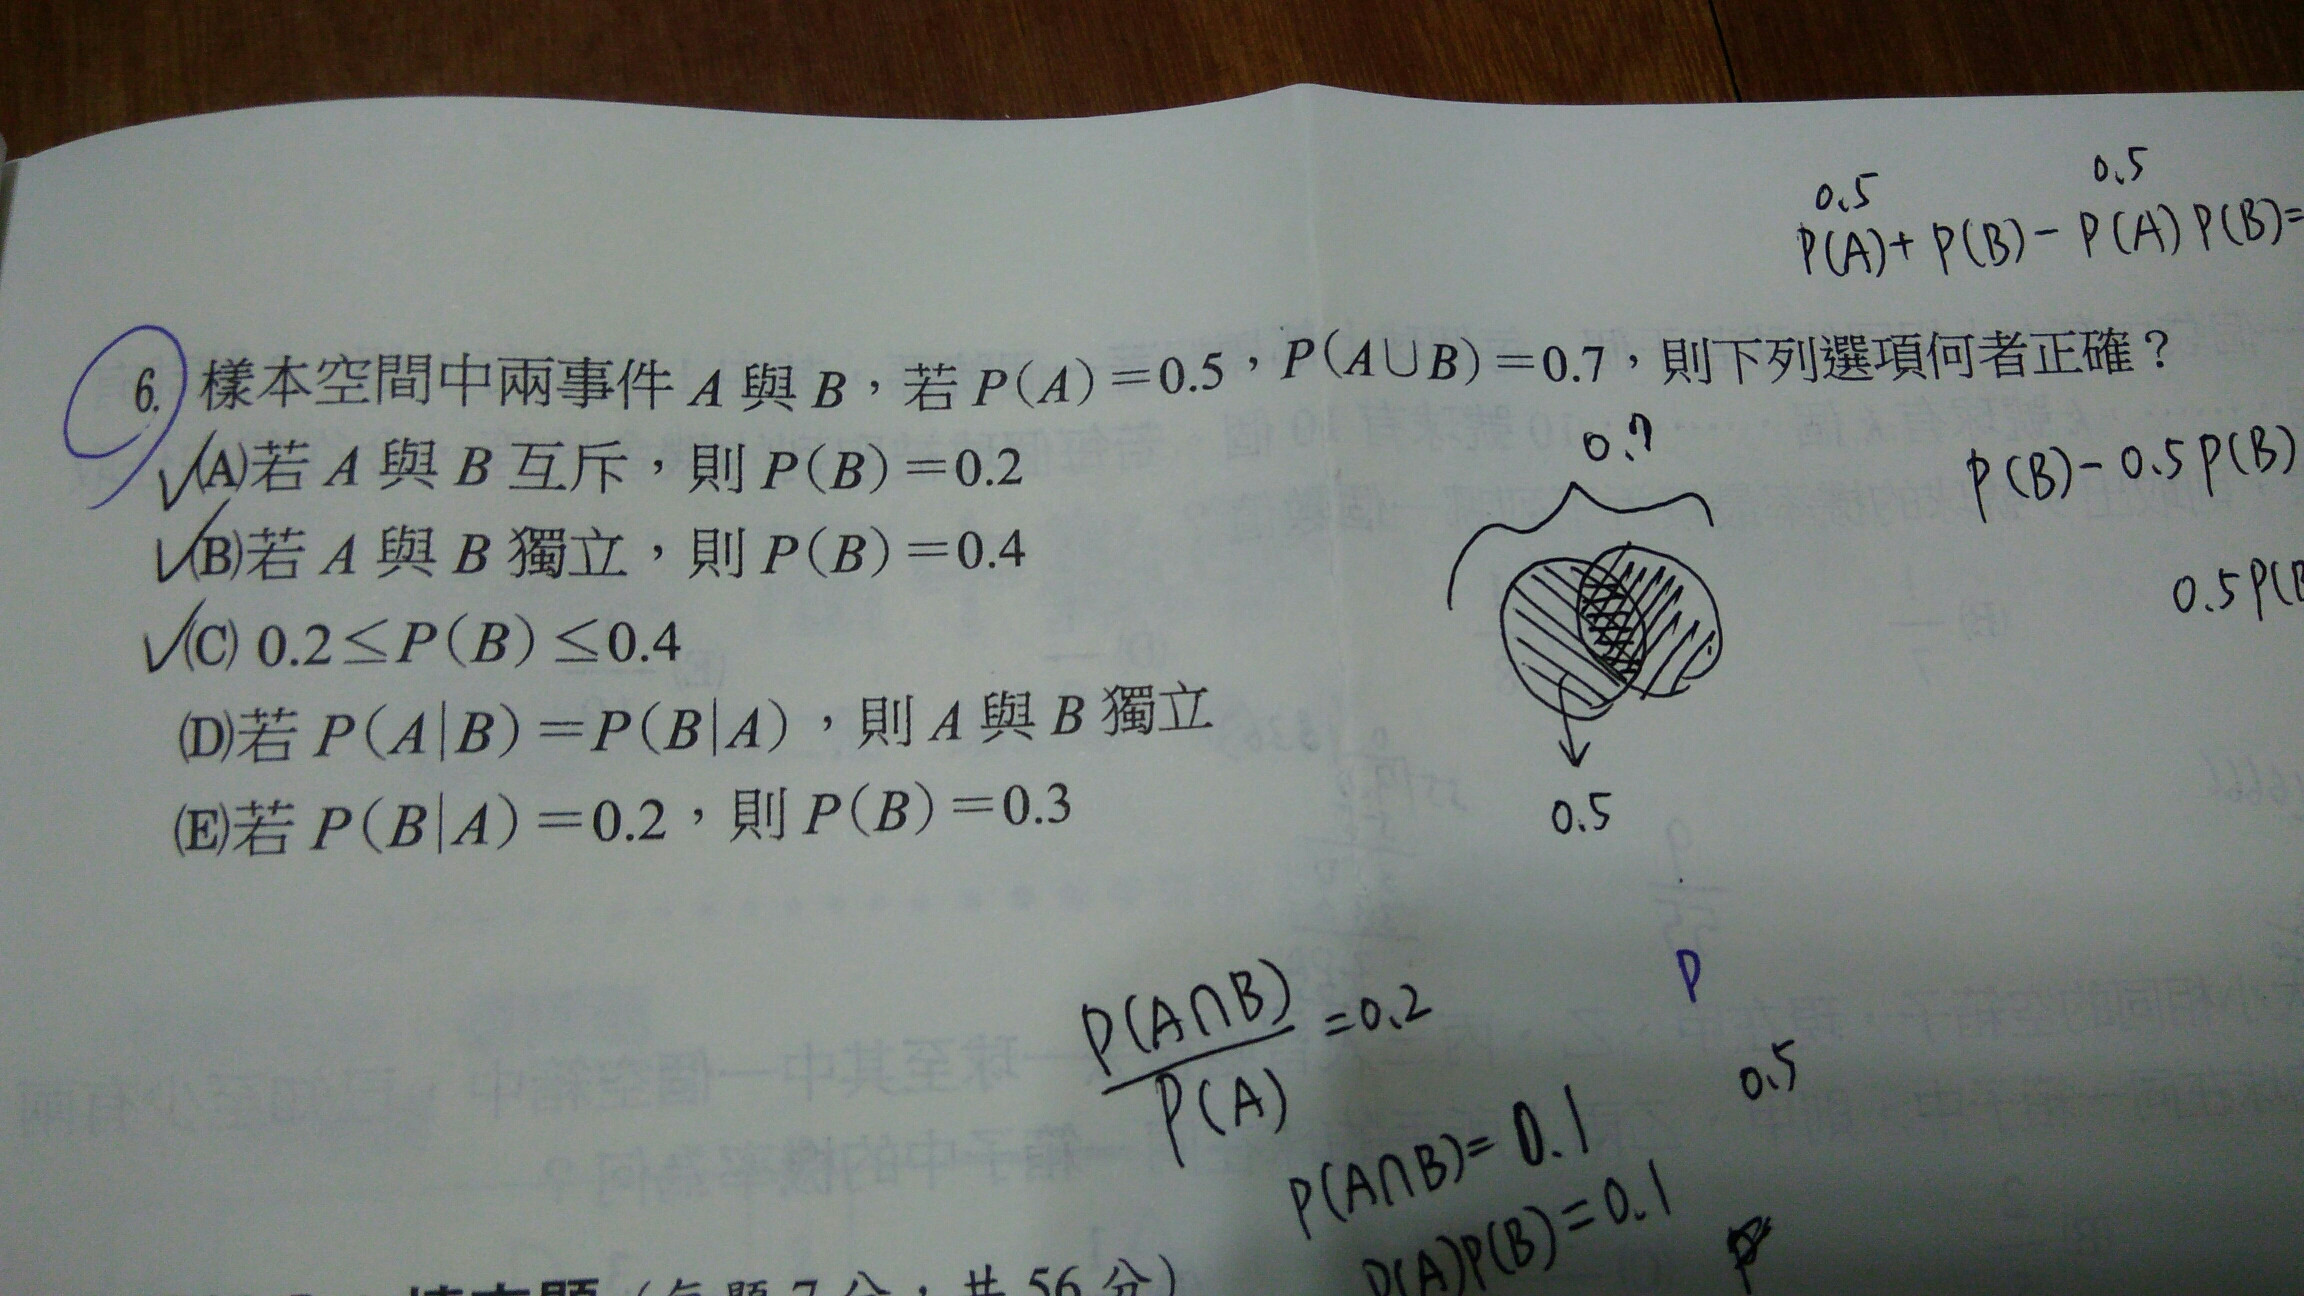 0.5
0.5
P(A)+P(B)-P(A)P(B)=
6.樣本空間中兩事件 A 與 B，若 P(A)=0.5，P(A∪B)=0.7，則下列選項何者正確？
(A)若 A 與 B 互斥，則 P(B)=0.2
0.7
P(B)-0.5P(B)
(B)若 A 與 B 獨立，則 P(B)=0.4
0.5P(B
(C) 0.2≤P(B)≤0.4
(D)若 P(A|B)=P(B|A)，則 A 與 B 獨立
(E)若 P(B|A)=0.2，則 P(B)=0.3
0.5
P(A∩B)/P(A)=0.2
P
0.5
P(A∩B)=0.1
P(A)P(B)=0.1
P
填充題（每題7分，共56分）